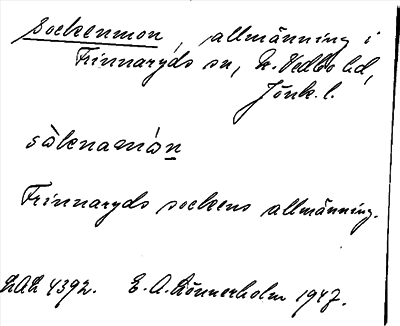 Sockenmon, allmänning i
Frinnaryds sn, N. Vedbo hd,
Jönk. l.
såkenamón
Frinnaryds sockens allmänning.
LAL 4392. E. A. Rönnerholm 1947.